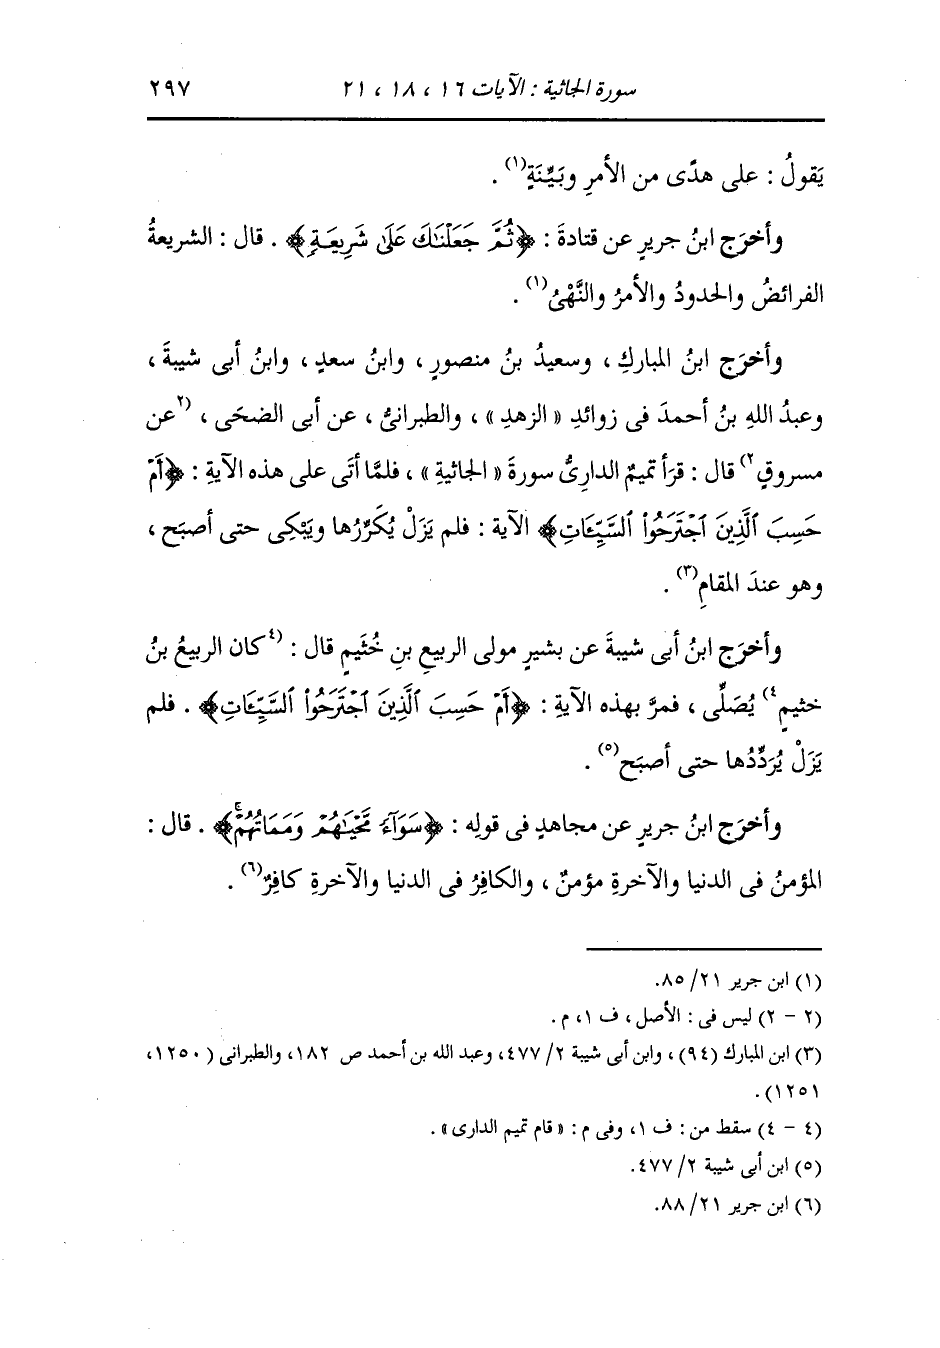 سورة الجاثية : الآيات ١٦ ، ١٨ ، ٢١ ٢٩٧
يَقولُ : على هدًى من الأمرِ وبَيِّنَةٍ(١) .
وأخرَج ابنُ جريرٍ عن قتادةَ : ﴿ثُمَّ جَعَلْنَٰكَ عَلَىٰ شَرِيعَةٍ﴾ . قال : الشريعةُ
الفرائضُ والحدودُ والأمرُ والنَّهْىُ(١) .
وأخرَج ابنُ المباركِ ، وسعيدُ بنُ منصورٍ ، وابنُ سعدٍ ، وابنُ أبى شيبةَ ،
وعبدُ اللهِ بنُ أحمدَ فى زوائدِ « الزهدِ » ، والطبرانىُّ ، عن أبى الضحَى ، (٢عن
مسروقٍ٢) قال : قرَأ تميمٌ الدارىُّ سورةَ « الجاثيةِ » ، فلمَّا أتَى على هذه الآيةِ : ﴿أَمْ
حَسِبَ ٱلَّذِينَ ٱجْتَرَحُوا۟ ٱلسَّيِّـَٔاتِ﴾ الآية : فلم يَزَلْ يُكَرِّرُها ويَبْكِى حتى أصبَح ،
وهو عندَ المقامِ(٣) .
وأخرَج ابنُ أبى شيبةَ عن بشيرٍ مولى الربيعِ بنِ خُثَيمٍ قال : (٤كان الربيعُ بنُ
خثيمٍ٤) يُصَلِّى ، فمرَّ بهذه الآيةِ : ﴿أَمْ حَسِبَ ٱلَّذِينَ ٱجْتَرَحُوا۟ ٱلسَّيِّـَٔاتِ﴾ . فلم
يَزَلْ يُرَدِّدُها حتى أصبَح(٥) .
وأخرَج ابنُ جريرٍ عن مجاهدٍ فى قولِه : ﴿سَوَآءً مَّحْيَـٰهُمْ وَمَمَاتُهُمْ ۚ﴾ . قال :
المؤمنُ فى الدنيا والآخرةِ مؤمنٌ ، والكافِرُ فى الدنيا والآخرةِ كافِرٌ(٦) .
(١) ابن جرير ٢١/ ٨٥.
(٢ – ٢) ليس فى : الأصل ، ف ١، م .
(٣) ابن المبارك (٩٤) ، وابن أبى شيبة ٢/ ٤٧٧، وعبد الله بن أحمد ص ١٨٢، والطبرانى ( ١٢٥٠،
١٢٥١) .
(٤ – ٤) سقط من : ف ١، وفى م : « قام تميم الدارى » .
(٥) ابن أبى شيبة ٢/ ٤٧٧.
(٦) ابن جرير ٢١/ ٨٨.